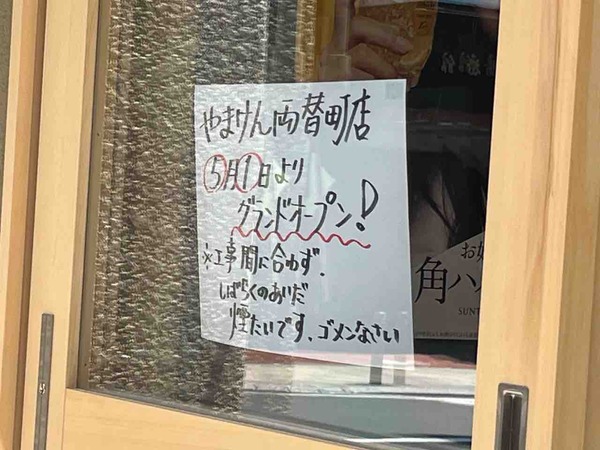 やまけん両替町店
5月1日より
グランドオープン!
※工事間に合わず、
しばらくのあいだ
煙たいです、ゴメンなさい
お好
角ハ
SUNT